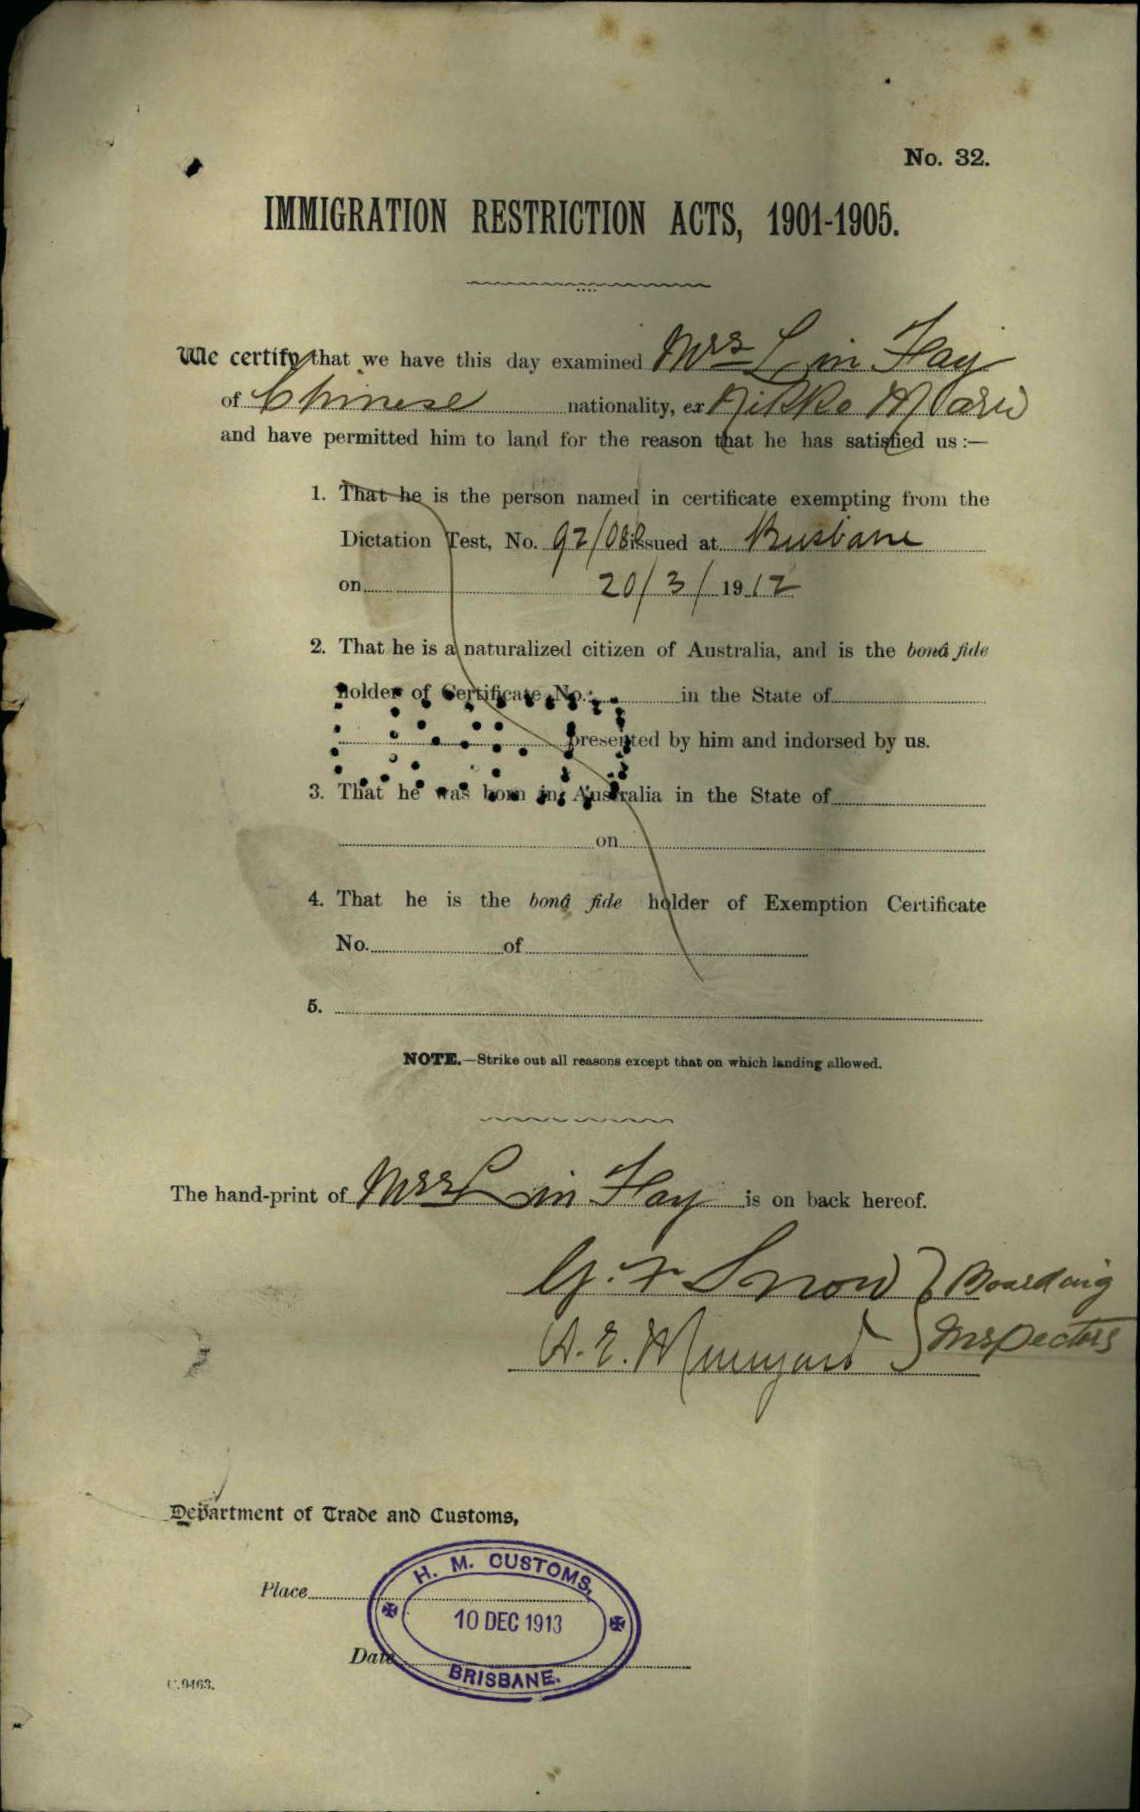 No. 32.
IMMIGRATION RESTRICTION ACTS, 1901-1905.
We certify that we have this day examined Mrs Lin Fay
of Chinese nationality, ex Nikko Maru
and have permitted him to land for the reason that he has satisfied us :—
1. That he is the person named in certificate exempting from the
Dictation Test, No. 92/082 issued at Brisbane
on 20/3/1912
2. That he is a naturalized citizen of Australia, and is the bonâ fide
holder of Certificate No. in the State of
presented by him and indorsed by us.
3. That he was born in Australia in the State of
on
4. That he is the bonâ fide holder of Exemption Certificate
No. of
5.
NOTE.—Strike out all reasons except that on which landing allowed.
The hand-print of Mrs Lin Fay is on back hereof.
G. F. Snow } Boarding
A. E. Inspectors
Department of Trade and Customs,
Place
H. M. CUSTOMS,
10 DEC 1913
BRISBANE.
Date
C.9463.